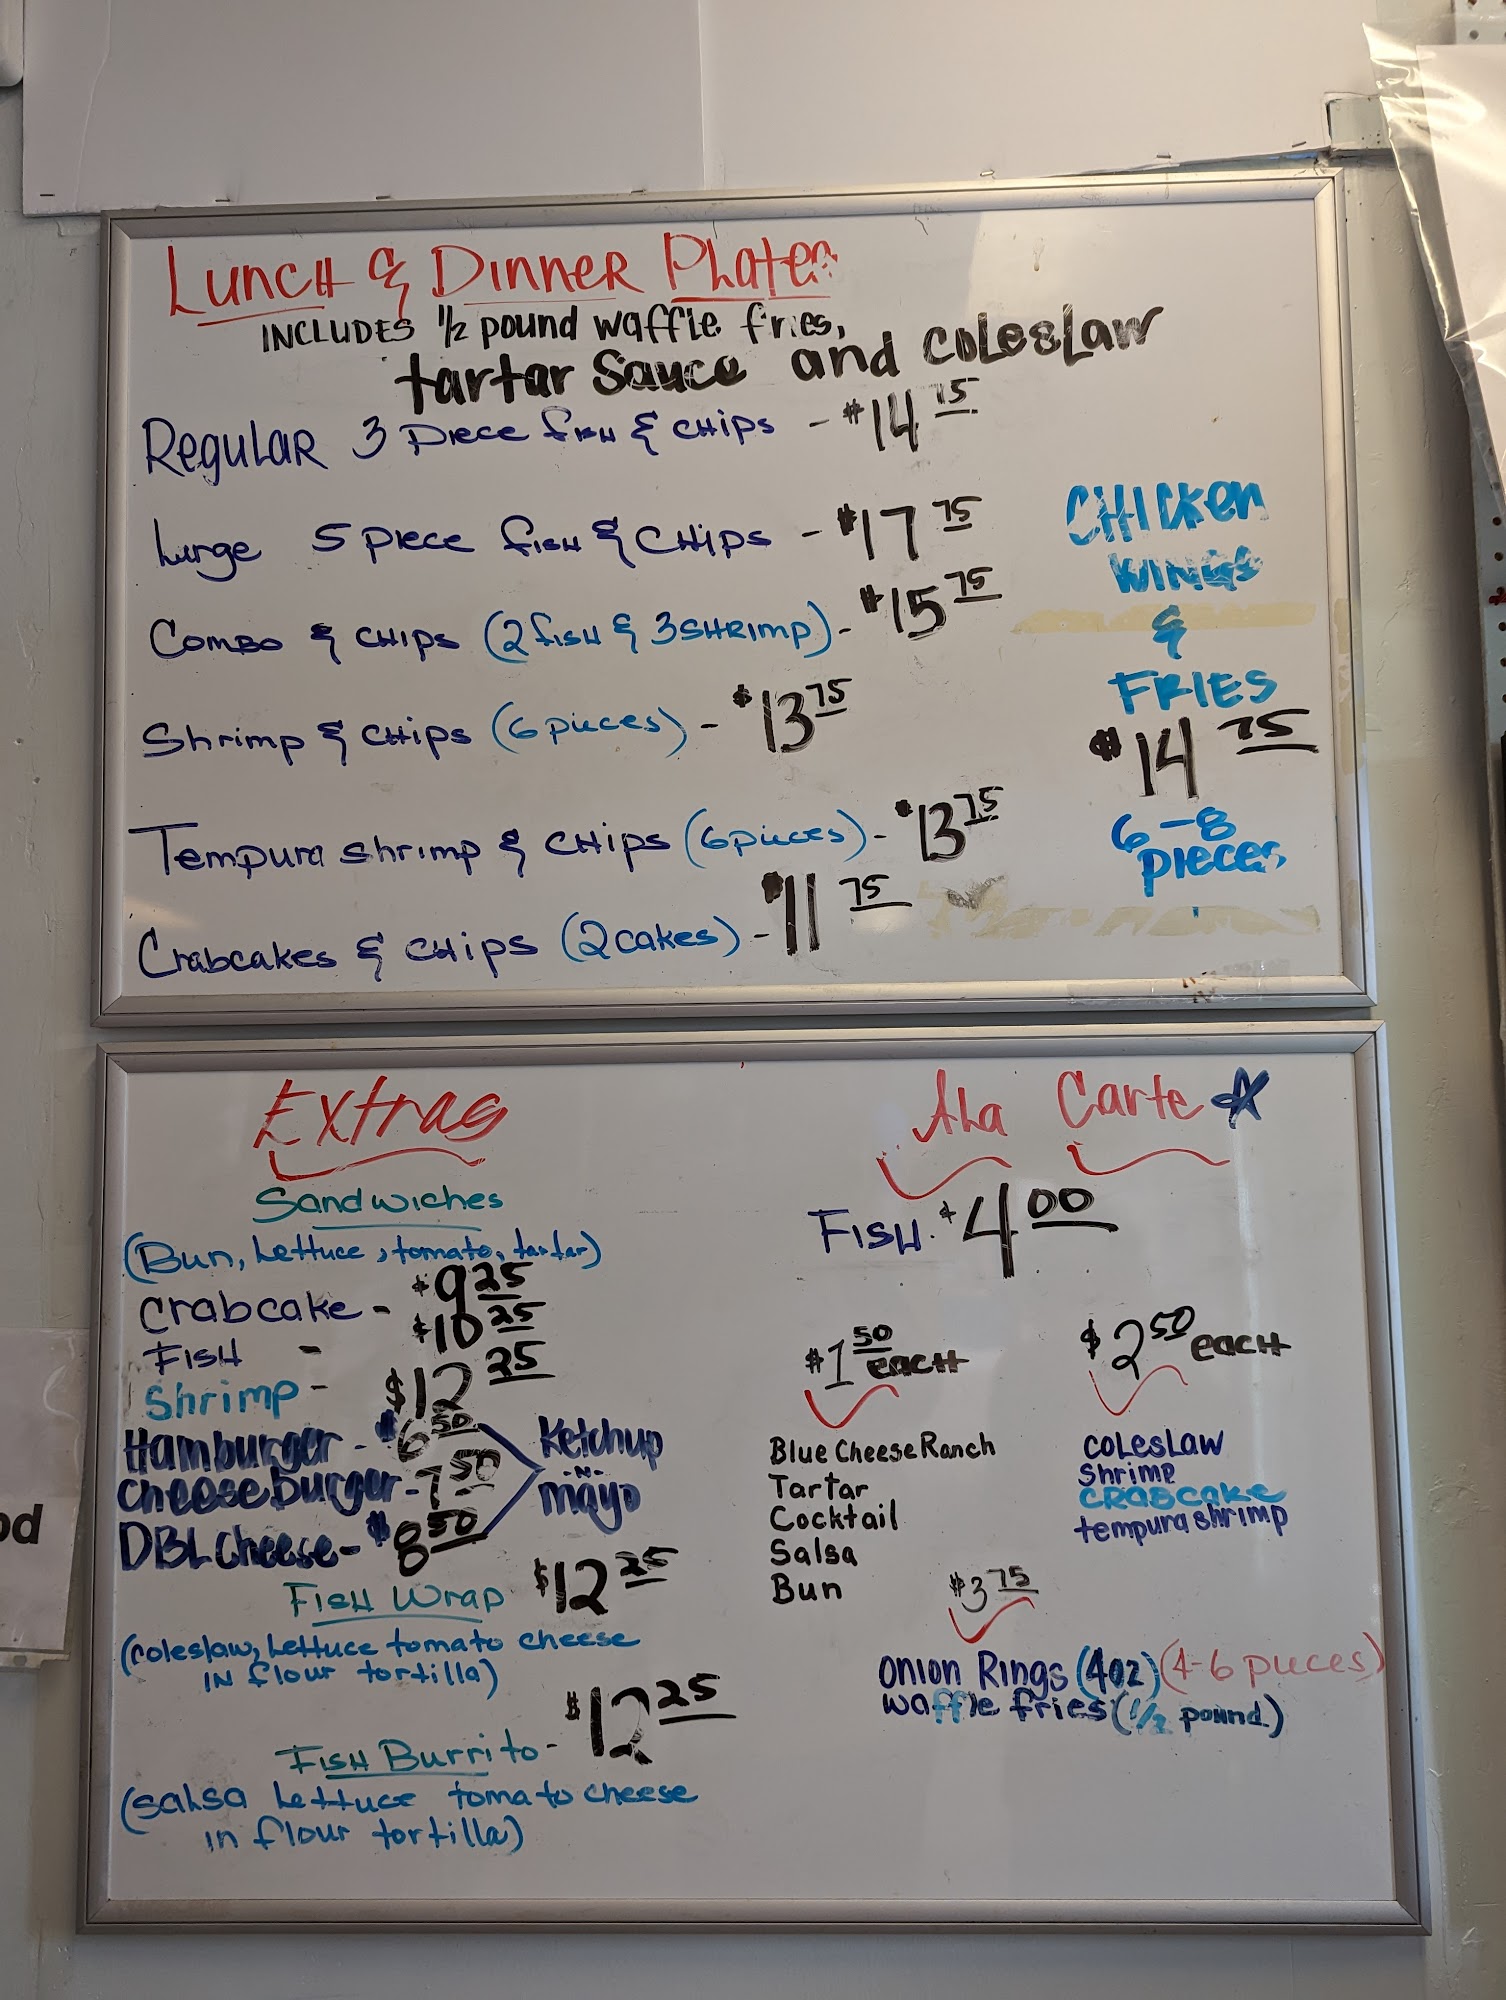 Lunch & Dinner Plates
INCLUDES 1/2 pound waffle fries,
tartar Sauce and coleslaw
Regular 3 Piece fish & chips - $14 75
Large 5 piece fish & chips - $17 75
Combo & chips (2 fish & 3 shrimp) - $15 75
Shrimp & chips (6 pieces) - $13 75
Tempura shrimp & chips (6 pieces) - $13 75
Crabcakes & chips (2 cakes) - $11 75
CHICKEN
WINGS
&
FRIES
$14 75
6-8
pieces
Extras
Sandwiches
(Bun, Lettuce, tomato, tartar)
Crabcake - $9 25
FISH - $10 25
Shrimp - $12 25
Hamburger - $6 50
Cheeseburger - 7 50
DBL Cheese - $8 50
Ketchup
-N-
mayo
FISH Wrap $12 25
(coleslaw, Lettuce tomato cheese
IN flour tortilla)
FISH Burrito - $12 25
(Salsa Lettuce tomato cheese
in flour tortilla)
Ala Carte
FISH. $4 00
$1 50 each
Blue Cheese Ranch
Tartar
Cocktail
Salsa
Bun
$2 50 each
coleslaw
Shrimp
CRABCAKE
tempura shrimp
$3 75
Onion Rings (4oz) (4-6 pieces)
waffle fries (1/2 pound)
od